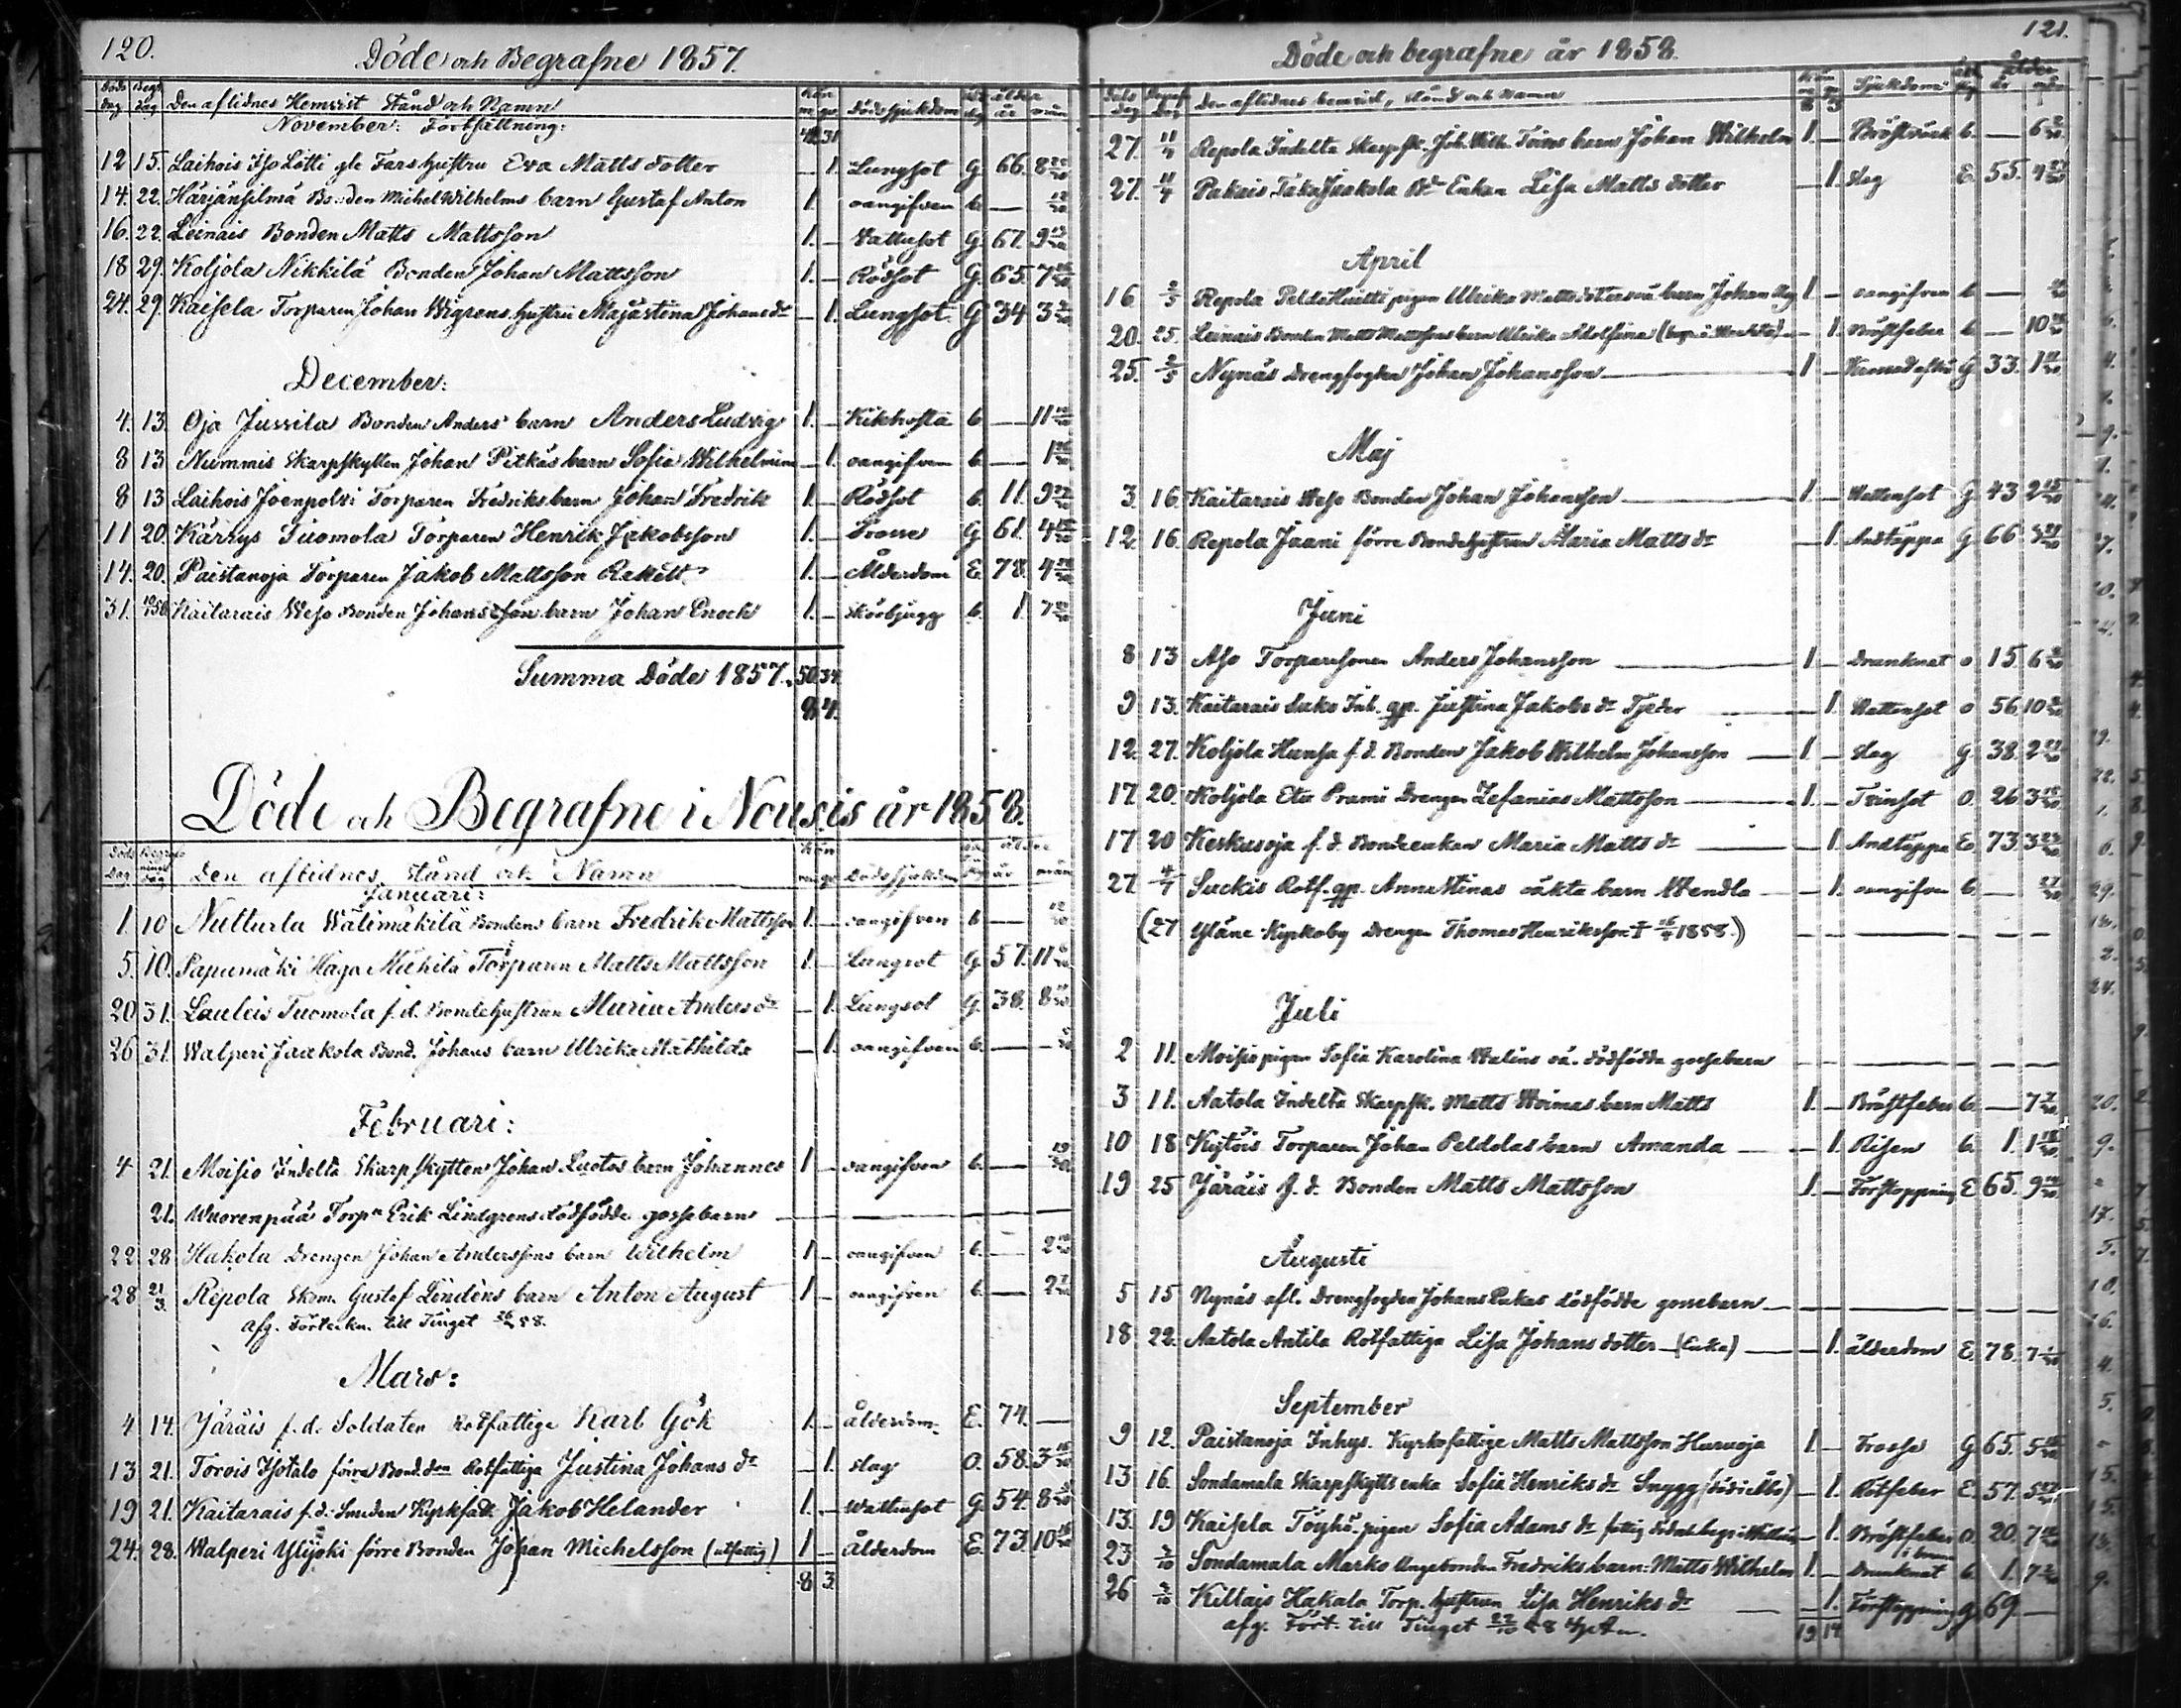 120.
Döde och Begrafne 1857.
Döds dag Begr. dag Den aflidnes Hemvist Stånd och Namn Kön m. qv. Dödssjukdom ålder år mån
November: Fortsättning:
42 31
12 15. Laihois Iso Lötti gle Farshustru Eva Matts dotter — 1. Lungsot G. 66. 8
14. 22. Härjänsilmä Bonden Michel Wilhelms barn Gustaf Anton 1. oangifven b. —
16. 22. Leinais Bonden Matts Mattsson 1. — Vattusot G. 67. 9
18 29. Koljola Nikkilä Bonden Johan Mattsson 1. — Rödsot G. 65. 7
24. 29. Kaisela Torparen Johan Wigrens hustru Majastina Johans dr — 1. Lungsot. G 34 3
December:
4. 13. Oja Jussila Bonden Anders barn Anders Ludvig 1. — Kikhosta b — 11
8 13 Nummis Skarpskytten Johan Pitkäs barn Sofia Wilhelmina — 1. oangifven b. — 1
8 13 Laihois Joenpolvi Torparen Fredriks barn Johan Fredrik 1. — Rödsot b. 11. 9
11 20. Kärrys Tuomola Torparen Henrik Jakobsson 1. — G 61. 4
14. 20. Paistanoja Torparen Jakob Mattsson Rakett 1. — Ålderdom E. 78. 4
31. Kaitarais Weso Bonden Johansson barn Johan Enoch 1. — Skörbjugg b. 1. 7
Summa Döde 1857. 50. 34.
84.
Döde och Begrafne i Nousis år 1858.
Döds Dag Begrafningsdag Den aflidnes Stånd och Namn Kön m qv Dödssjukdom år mån
Januari:
1. 10 Nutturla Wälimäkilä Bondens barn Fredrik Mattsson 1. — oangifven b — 12/30
5. 10. Papumäki Haga Mikkilä Torparen Matts Mattsson 1. — Lungsot G. 57. 11
20 31. Lauleis Tuomola f.d. Bondehustrun Maria Anders dr — 1. Lungsot G. 38. 8
26 31. Walperi Jaakola Bond. Johans barn Ulrika Mathilda — 1. oangifven b. —
Februari:
4 21. Moisio Indelta Skarpskytten Johan Luotos barn Johannes 1 — oangifven b. — 19/30
21. Wuorenpää Torpn Erik Lindgrens dödfödde gossebarn —
22 28 Hakola Drengen Johan Anderssons barn Wilhelm 1 — oangifven b. — 2
28 21/3. Repola Skom. Gustaf Lindéns barn Anton August 1 — oangifven b. — 2
afg. Förteckn. till Tinget 58.
Mars:
4 14. Järäis f.d. Soldaten Rotfattige Karl Gök 1. — ålderdom. E. 74. —
13 21. Torois Isotalo förra Bond. Rotfattiga Justina Johans dr — 1. slag O. 58. 3
19 21. Kaitarais f.d. Smeden Kyrkfatt. Jakob Helander 1. — Wattusot G. 54. 8
24. 28. Walperi Ylijoki förre Bonden Johan Michelsson (utfattig) 1 — ålderdom E. 73. 10
8 3.
121.
Döde och begrafne år 1858.
Döds dag Begraf. dag Den aflidnes hemvist, stånd och namn Kön Sjukdom ålder år mån
27. 11/4 Repola Indelta Skarpsk. Joh. Wilh. Toivos barn Johan Wilhelm 1. — b. — 6
27. 11/4 Pakais Taka Jaakola Bd Enkan Lisa Matts dotter — 1. slag E. 55. 4
April
16 2/5 Repola Pelda Huitti pigan Ulrika Matts dotters oä barn Johan 1 — oangifven b —
20. 25. Leinais Bonden Matts Mattssons barn Ulrika Adolfina — 1. Bröstfeber b. — 10
25. 2/5 Nynäs Drengfogden Johan Johansson — 1 — G. 33. 1
Maj
3 16. Kaitarais Weso Bonden Johan Johansson — 1. — Wattusot G 43 2
12. 16. Repola Jaani förre Bondehustrun Maria Matts dr — 1. Andtäppa G 66
Juni
8 13 Aso Torparesonen Anders Johansson — 1 — Drunknat o 15. 6
9 13. Kaitarais Suko Inh. qp. Justina Jakobs dr Tjeder — 1. Wattusot o 56. 10
12. 27. Koljola Hansa f.d. Bonden Jakob Wilhelm Johansson — 1 — slag G. 38. 2
17. 20. Koljola Etu Prami Drengen Zefanias Mattsson — 1. — Tvinsot O. 26 3
17 20 Keskusoja f.d. Bondeenkan Maria Matts dr — 1 Andtäppa E. 73. 3 23/30
27. 4/7 Suckis Rotf. qp. Anna Stinas oäkta barn Wendla — 1. oangifven b. — 27/30
(27 Yläne Kyrkoby Drengen Thomas Henriksson † 1858.) —
Juli
2 11. Moisio pigan Sofia Karolina Walins oä. dödfödda gossebarn —
3 11. Aatola Indelta Skarpsk. Matts Woimas barn Matts 1. — Bröstfeber b. — 7
10 18 Kytöis Torparen Johan Peldolas barn Amanda — 1. Risen b. 1. 1
19 25 Järäis f.d. Bonden Matts Mattsson 1. — Förstoppning E 65. 9
Augusti
5 15 Nynäs afl. Drengfogden Johans Pukas dödfödde gossebarn —
18 22. Aatola Antila Rotfattiga Lisa Johans dotter (Enka) — 1. ålderdom E. 78. 7
September
9 12. Paistanoja Inhys. Kyrkofattige Matts Mattsson Haruoja 1. — Frossa G. 65. 5
13 16. Sondamala Skarpskytts enka Sofia Henriks dr Snygg (död i Åbo) — 1. Rötfeber E. 57. 5
13. 19 Kaisela Töyhö pigan Sofia Adams dr — 1. Bröstfeber o 20. 7
23 3/10 Sondamala Marko Ungebonden Fredriks barn Matts Wilhelm 1. — Drunknat i brunn b 1. 7
26 3/10 Killais Hakala Torp. hustrun Lisa Henriks dr — 1. Förstoppning G. 69. —
afg. Fört. till Tinget 58
19 14